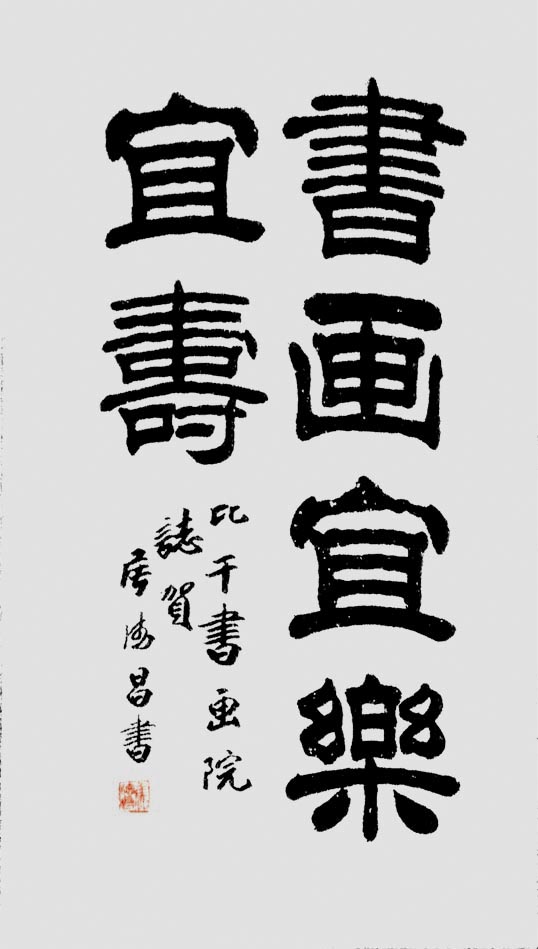 書画宜樂
宜壽
比干書画院
誌賀
唐海昌書